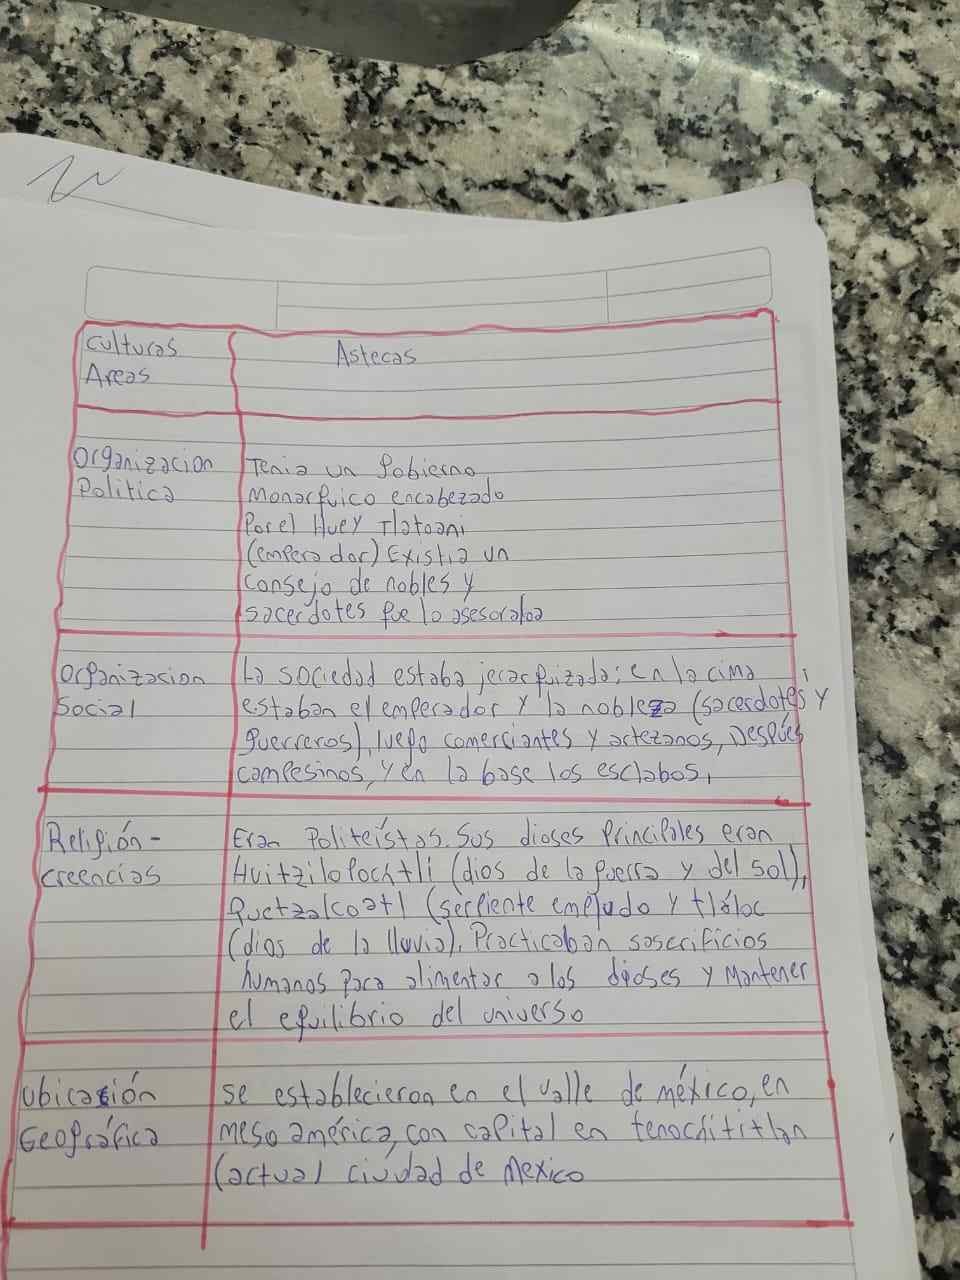 Culturas Astecas
Areas
Organizacion Tenia un gobierno
Politica monarquico encabezado
Por el Huey Tlatoani
(emperador) Existia un
consejo de nobles y
sacerdotes que lo asesoraba
Organizacion La sociedad estaba jerarquizada; en la cima
Social estaban el emperador y la nobleza (sacerdotes y
guerreros), luego comerciantes y artezanos, Después
campesinos, y en la base los esclabos,
Religión - Eran Politeístas. Sus dioses Principales eran
creencias Huitzilopochtli (dios de la guerra y del sol),
Quetzalcoatl (serpiente empludo y tláloc
(dios de la lluvia). Practicaban sascrificios
humanos para alimentar a los dioses y Mantener
el equilibrio del universo
Ubicación Se establecieron en el valle de méxico, en
Geográfica meso américa, con capital en tenochititlan
(actual ciudad de Mexico